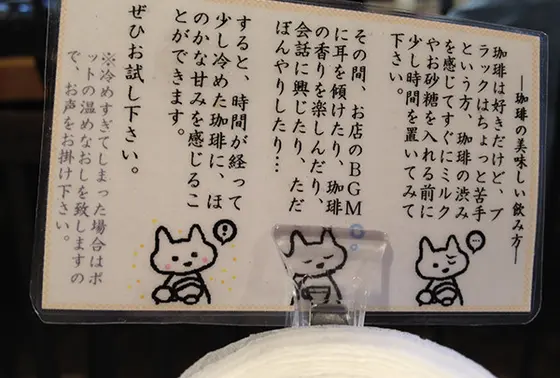 ―珈琲の美味しい飲み方―
珈琲は好きだけど、ブ
ラックはちょっと苦手
という方、珈琲の渋み
を感じてすぐにミルク
やお砂糖を入れる前に
少し時間を置いてみて
下さい。
その間、お店のBGM
に耳を傾けたり、珈琲
の香りを楽しんだり、
会話に興じたり、ただ
ぼんやりしたり…
すると、時間が経って
少し冷めた珈琲に、ほ
のかな甘みを感じるこ
とができます。
ぜひお試し下さい。
※冷めすぎてしまった場合はポ
ットの温めなおしを致しますの
で、お声をお掛け下さい。